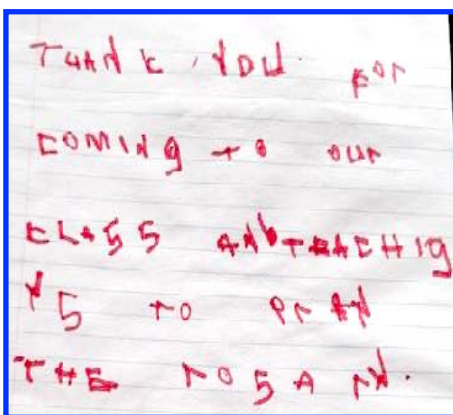 THANK YOU FOR
COMING TO OUR
CLASS AND TEACHIg
YS TO PRAY
THE ROSARY.